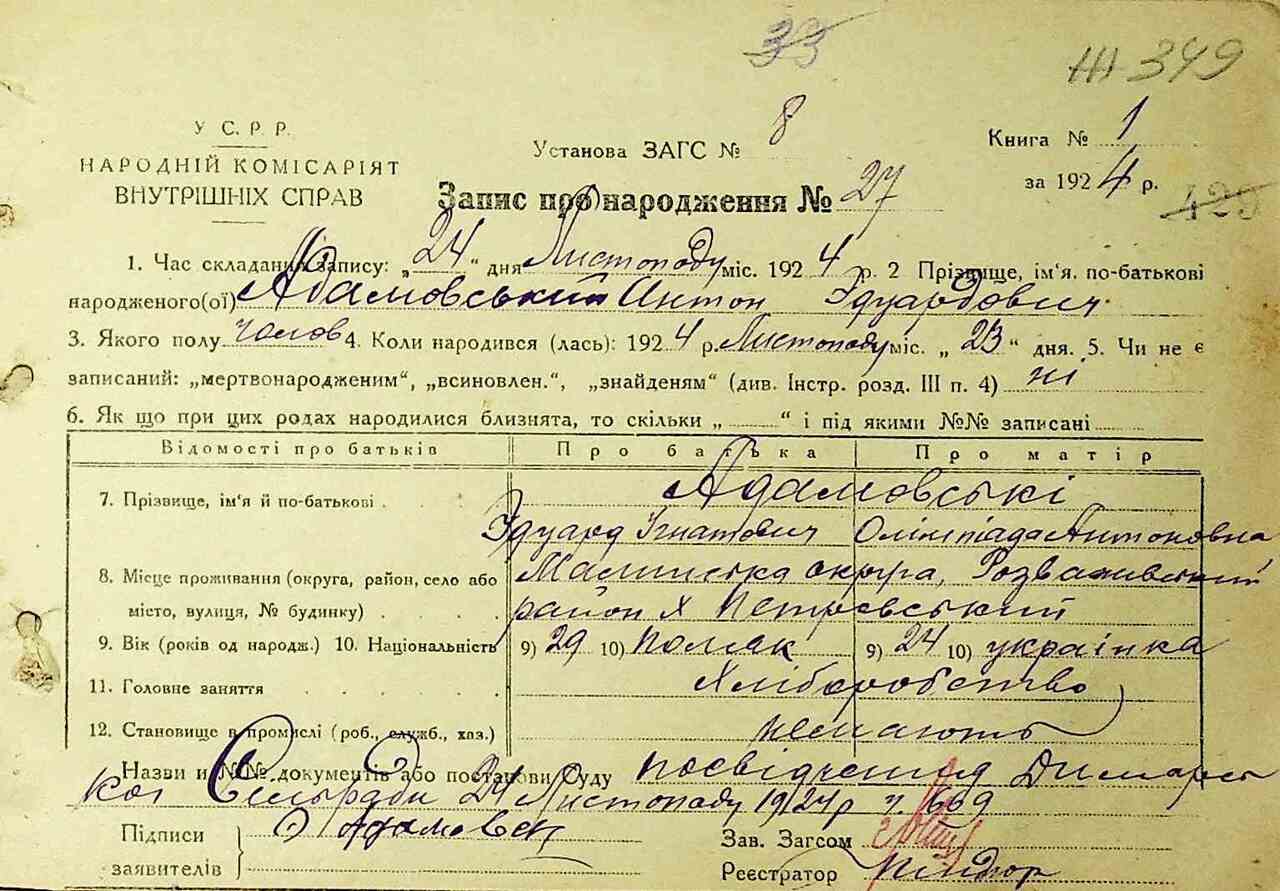 33
Ж-349
У С. Р. Р.
НАРОДНІЙ КОМІСАРІЯТ
ВНУТРІШНІХ СПРАВ
Установа ЗАГС № 8
Книга № 1
за 1924 р.
Запис про народження № 27
429
1. Час складання запису: „24“ дня Листопаду міс. 1924 р. 2 Прізвище, ім'я. по-батькові
народженого(ої) Адамовський Антон Едуардович
3. Якого полу чолов 4. Коли народився (лась): 1924 р. Листопаду міс. „23“ дня. 5. Чи не є
записаний: „мертвонародженим“, „всиновлен.“, „знайденям“ (див. Інстр. розд. III п. 4) ні
6. Як що при цих родах народилися близнята, то скільки „ “ і під якими №№ записані
Відомості про батьків Про батька Про матір
7. Прізвище, ім'я й по-батькові Адамовські
Едуард Ігнатович Олімпіада Антоновна
8. Місце проживання (округа, район, село або Малинська округа, Розважівський
місто, вулиця, № будинку) район х Петровський
9. Вік (років од народж.) 10. Національність 9) 29 10) поляк 9) 24 10) українка
11. Головне заняття Хліборобство
12. Становище в промислі (роб., служб., хаз.) немають
Назви и №№ документів або постанови Суду посвідчення Димарсь
кої Сельради 24 Листопаду 1924 р ч. 669
Підписи
заявителів
Э Адамовск
Зав. Загсом
Реєстратор